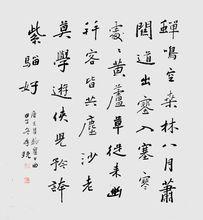 蟬鳴空桑林八月蕭
關道出塞入塞寒
處々黃蘆草從來幽
并客皆共塵沙老
莫學遊俠兒矜誇
紫騮好